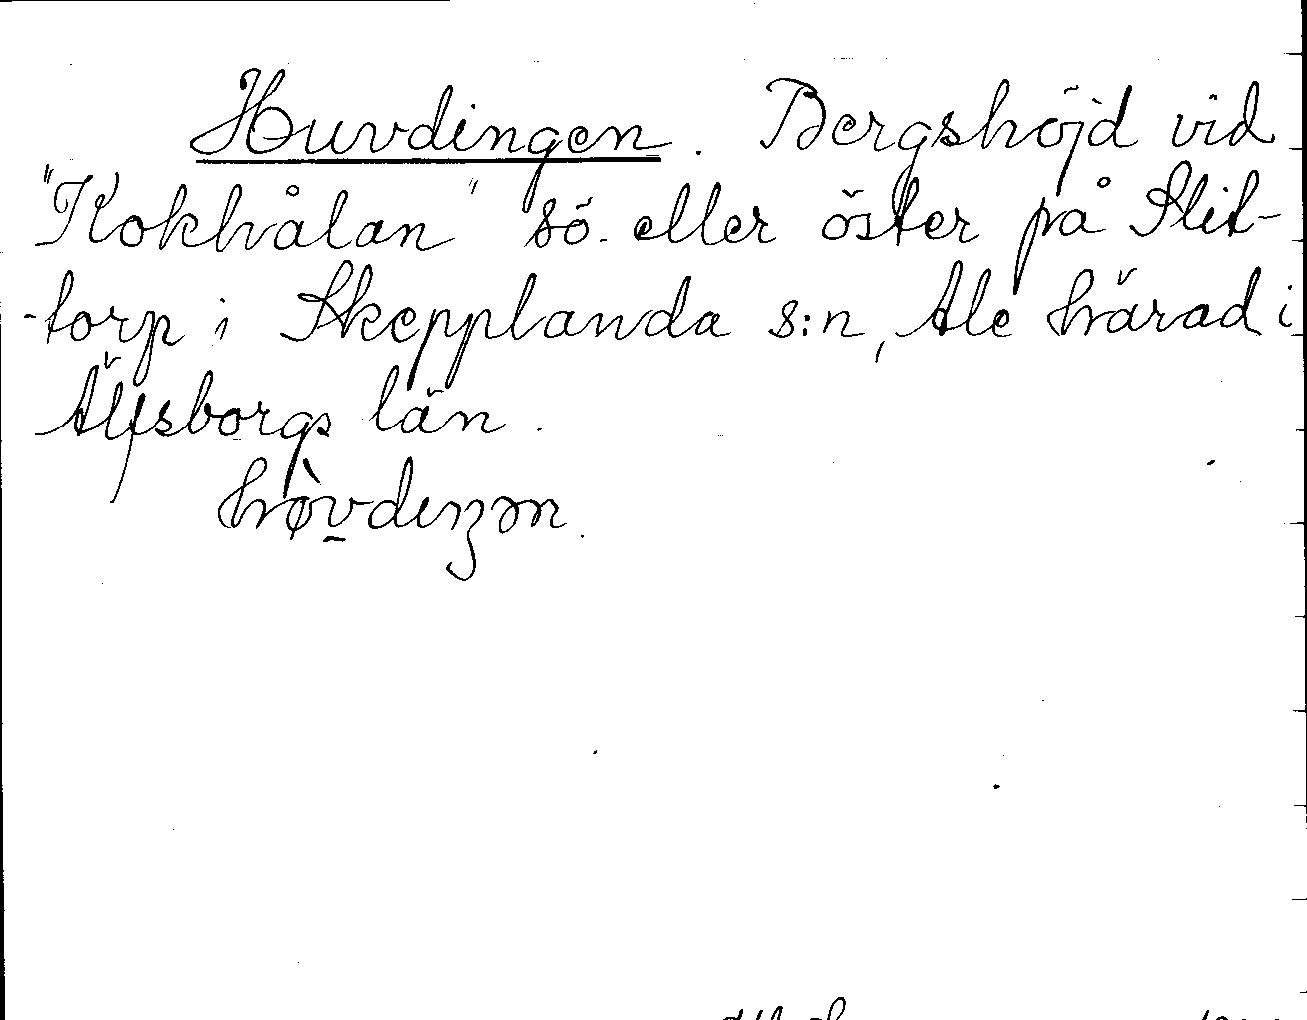 Huvdingen. Bergshöjd vid
"Kokhålan" sö. eller öster på Slit-
-torp i Skepplanda s:n, Ale härad i
Älfsborgs län.